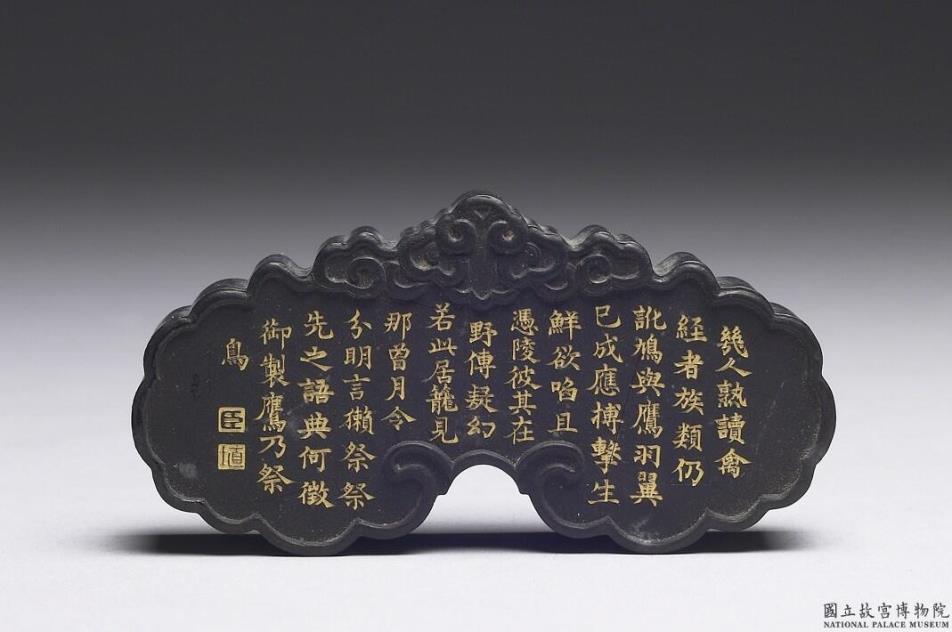 幾人熟讀禽
経者族類仍
訛鳩與鷹羽翼
已成應搏擊生
鮮欲啗且
憑陵彼其在
野傳疑幻
若此居籠見
那曾月令
分明言獺祭祭
先之語典何徵
御製鷹乃祭
鳥
臣
國立故宮博物院
NATIONAL PALACE MUSEUM